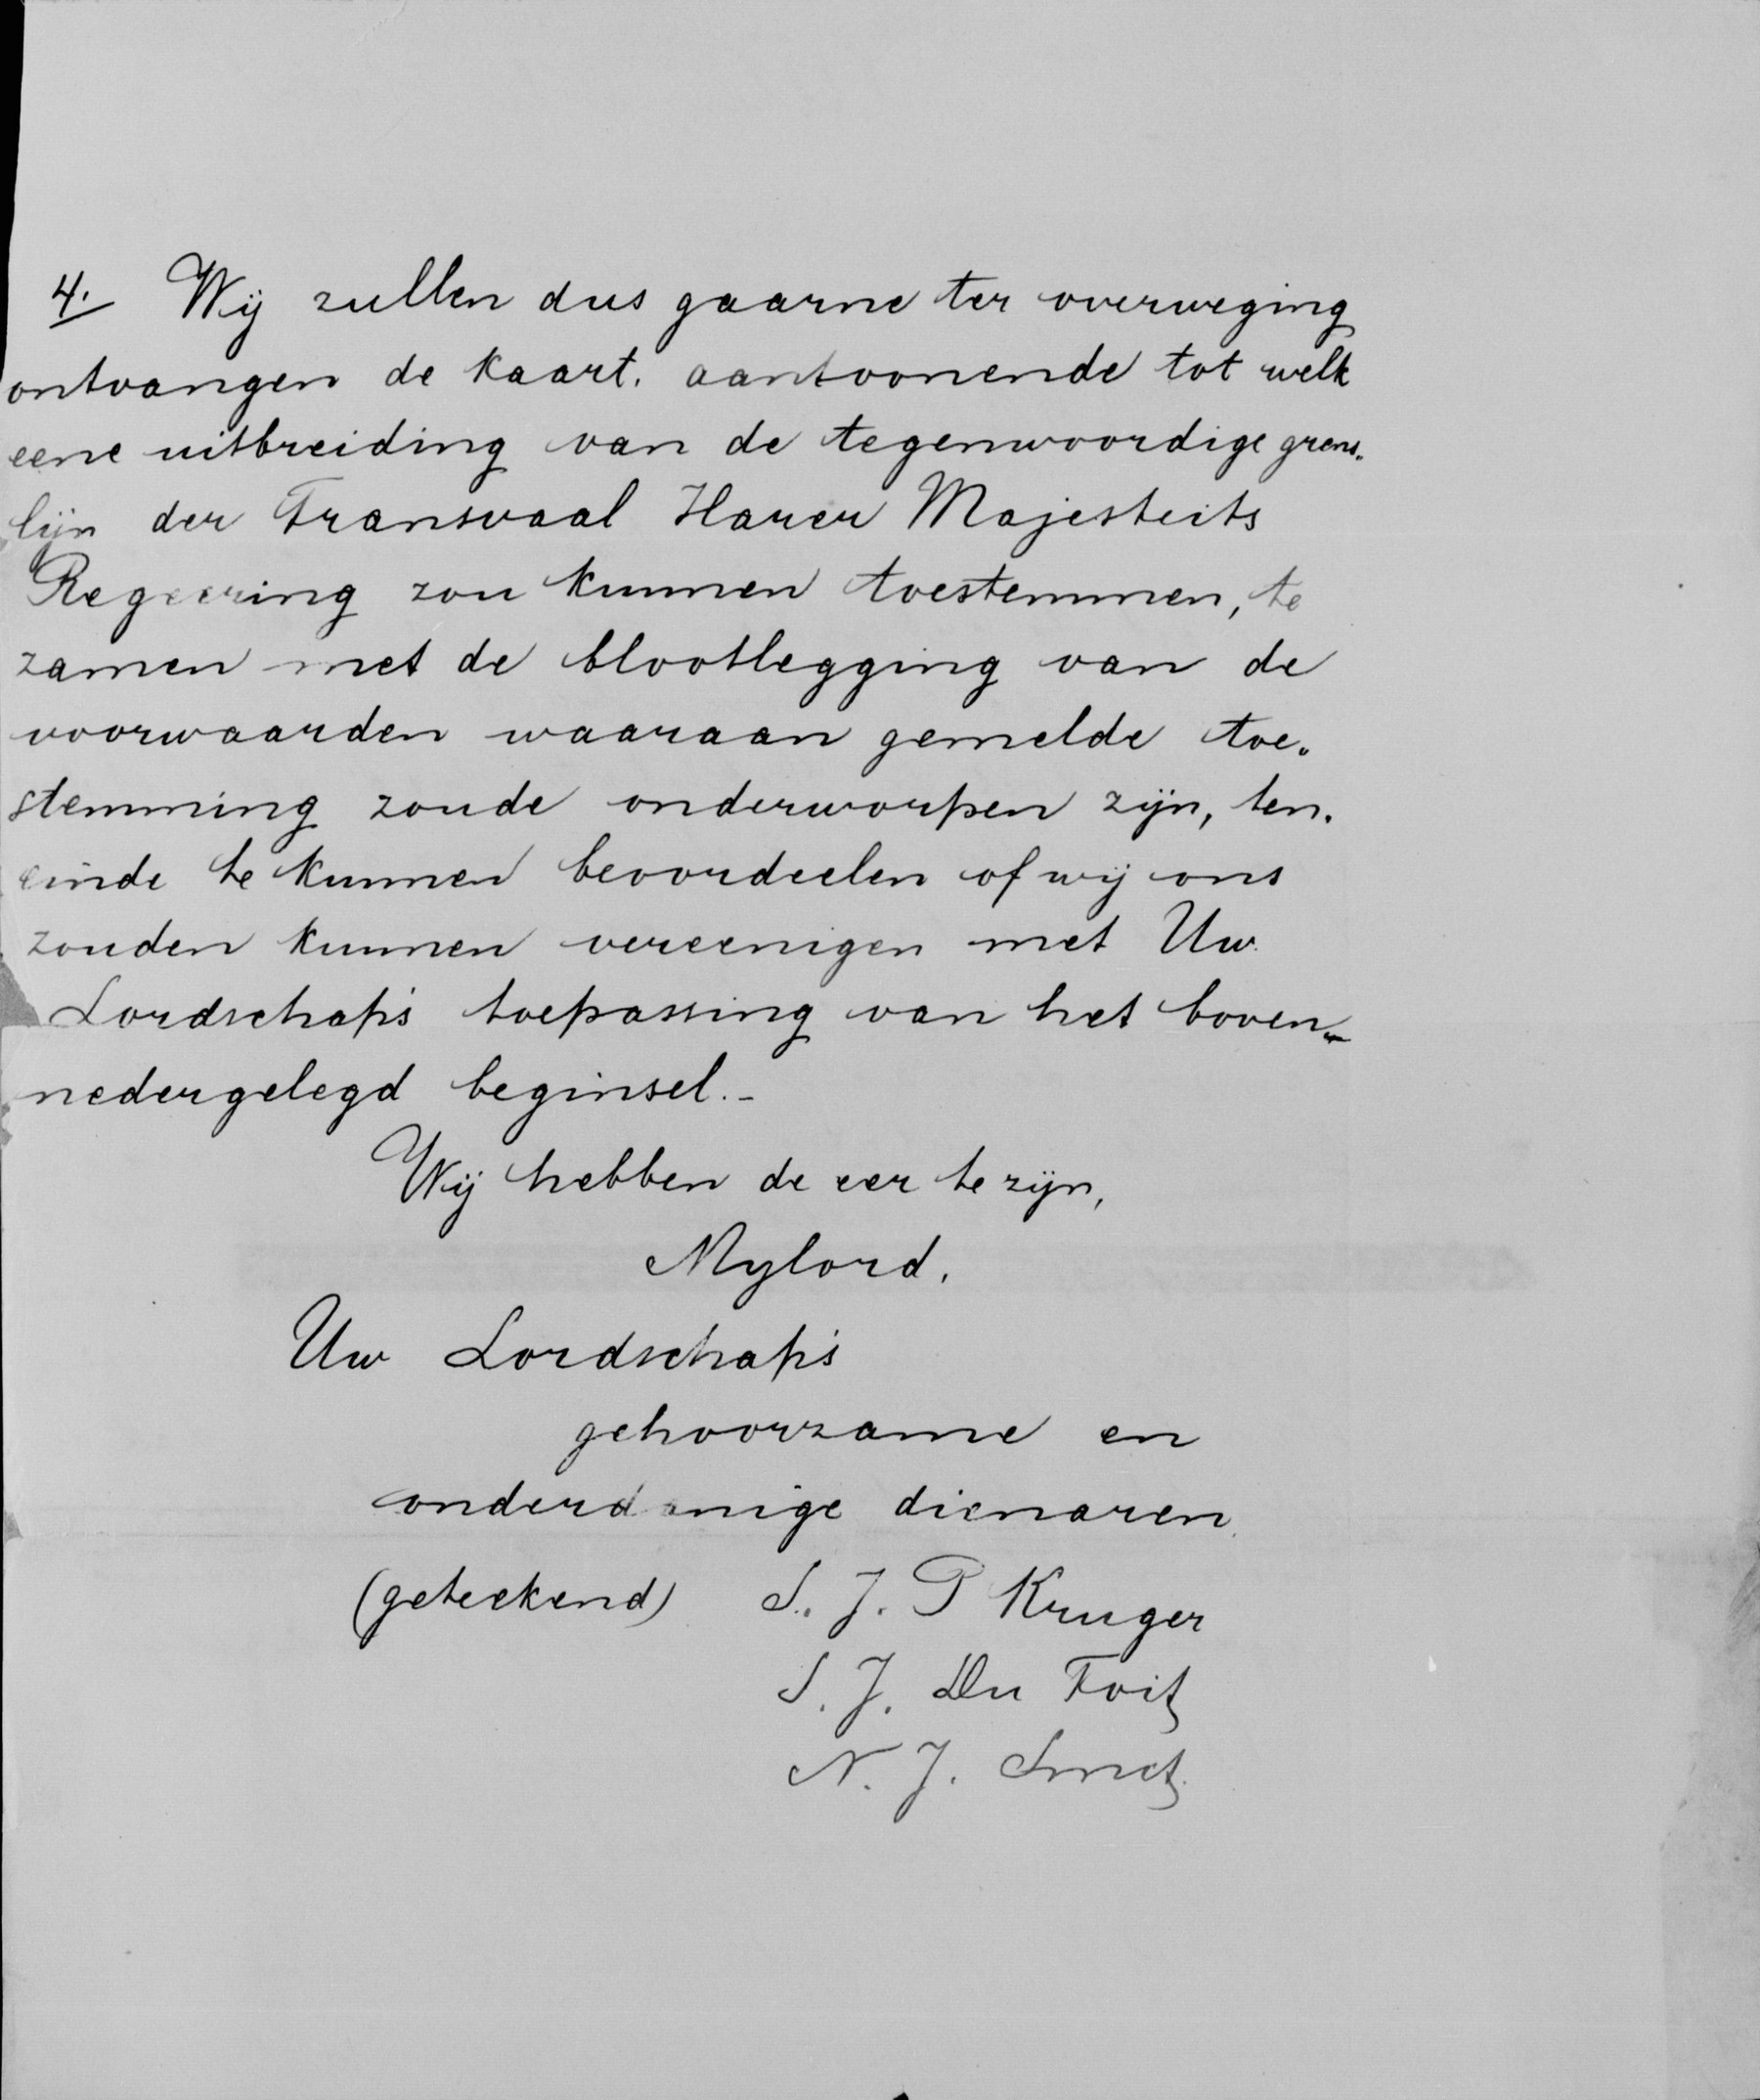 4. Wij zullen dus gaarne ter overweging
ontvangen de kaart. aantoonende tot welk
eene uitbreiding van de tegenwoordige grens-
lijn der Transvaal Harer Majesteits
Regeering zou kunnen toestemmen, te
zamen met de blootlegging van de
voorwaarden waaraan gemelde toe-
stemming zoude onderworpen zijn, ten.
einde te kunnen beoordeelen of wij ons
zouden kunnen vereenigen met Uw
Lordschap's toepassing van het boven-
nedergelegd beginsel.-
Wij hebben de eer te zijn,
Mylord,
Uw Lordschap's
gehoorzame en
onderdanige dienaren
(geteekend) S. J. P Kruger
S. J. Du Toit
N. J. Smit